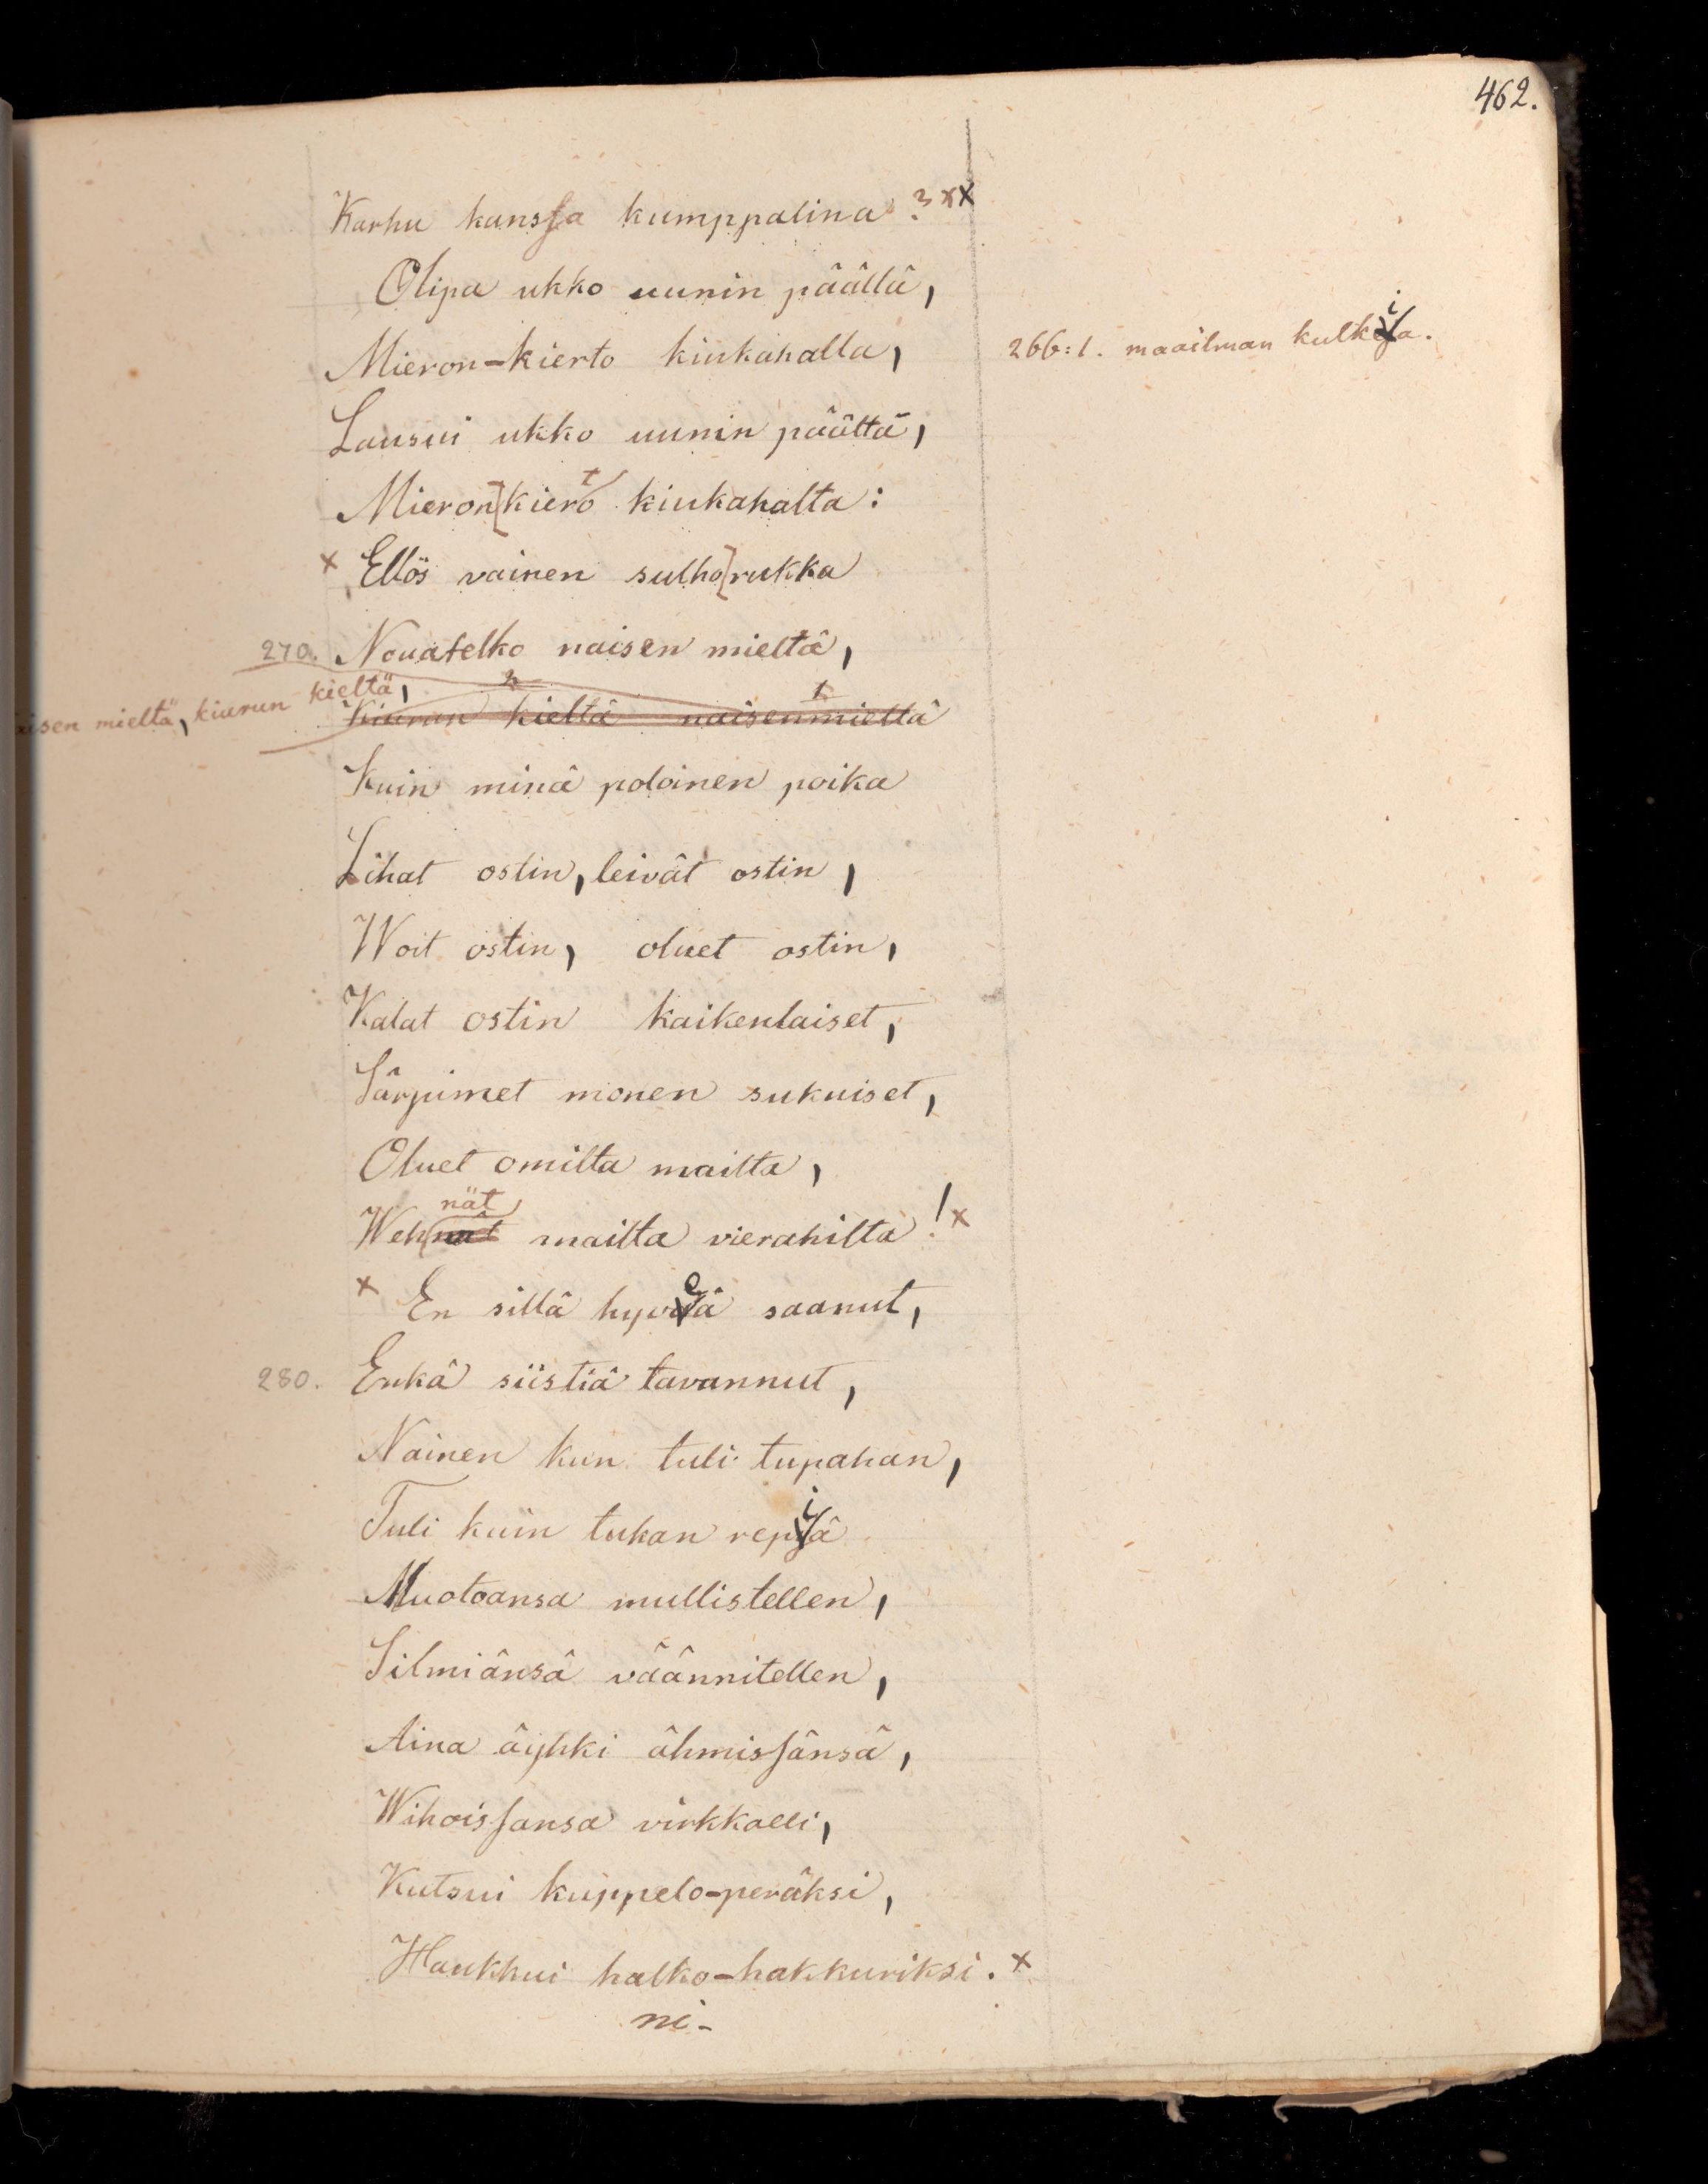 462.
Karhu kanssa kumppalina? xx
Olipa ukko uunin päällä,
Mieron-kierto kiukahalla,
266:1. maailman kulkia.
Lausui ukko uunin päältä,
Mieron kierto kiukahalta:
x Ellös vainen sulho rukka
270. Nouatelko naisen mieltä,
aisen mieltä, kiurun kieltä,
Kiurun kieltä naisen mieltä
Kuin minä poloinen poika
Lihat ostin, leivät ostin,
Woit ostin, oluet ostin,
Kalat ostin kaikenlaiset,
Särpimet monen sukuiset,
Oluet omilta mailta,
Wehnät mailta vierahilta! x
x En sillä hyveä saanut,
280. Enkä siistiä tavannut,
Nainen kun tuli tupahan,
Tuli kuin tukan repiä
Muotoansa mullistellen,
Silmiänsä väännitellen,
Aina äyhki ähmissänsä,
Wihoissansa virkkalli,
Kutsui kuppelo-peräksi,
Haukkui halko-hakkuriksi. x
ni-